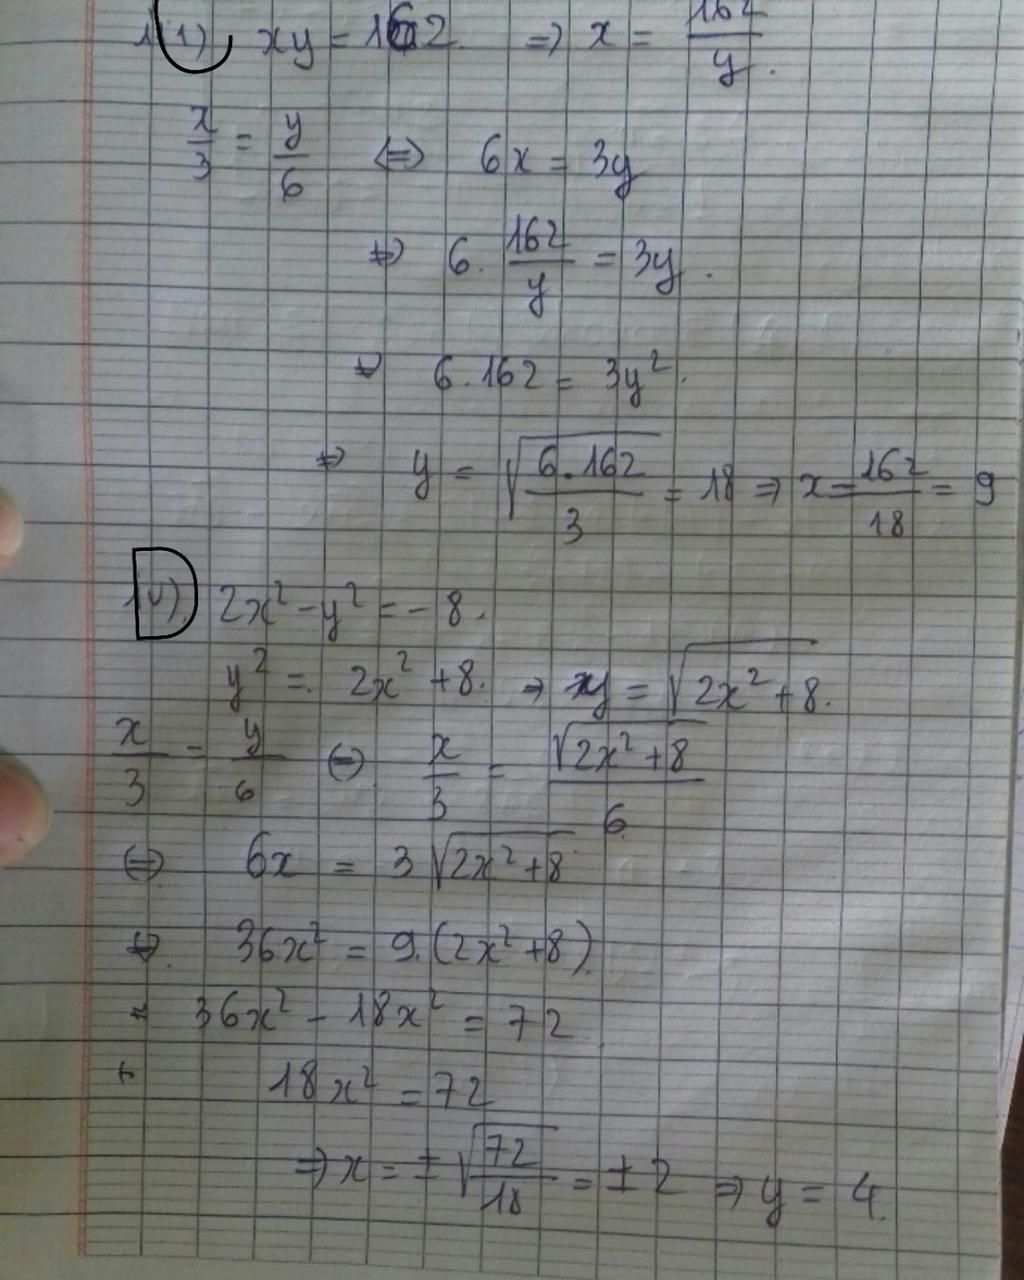 1) xy = 162 => x = 162/y.
x/3 = y/6 <=> 6x = 3y
=> 6. 162/y = 3y.
6.162 = 3y².
=> y = √(6.162/3) = 18 => x = 162/18 = 9
2x² - y² = - 8.
y² = 2x² + 8. => y = √(2x² + 8).
x/3 = y/6 <=> x/3 = √(2x² + 8)/6
<=> 6x = 3√(2x² + 8)
<=> 36x² = 9.(2x² + 8)
36x² - 18x² = 72
18x² = 72
=> x = ±√(72/18) = ± 2 => y = 4